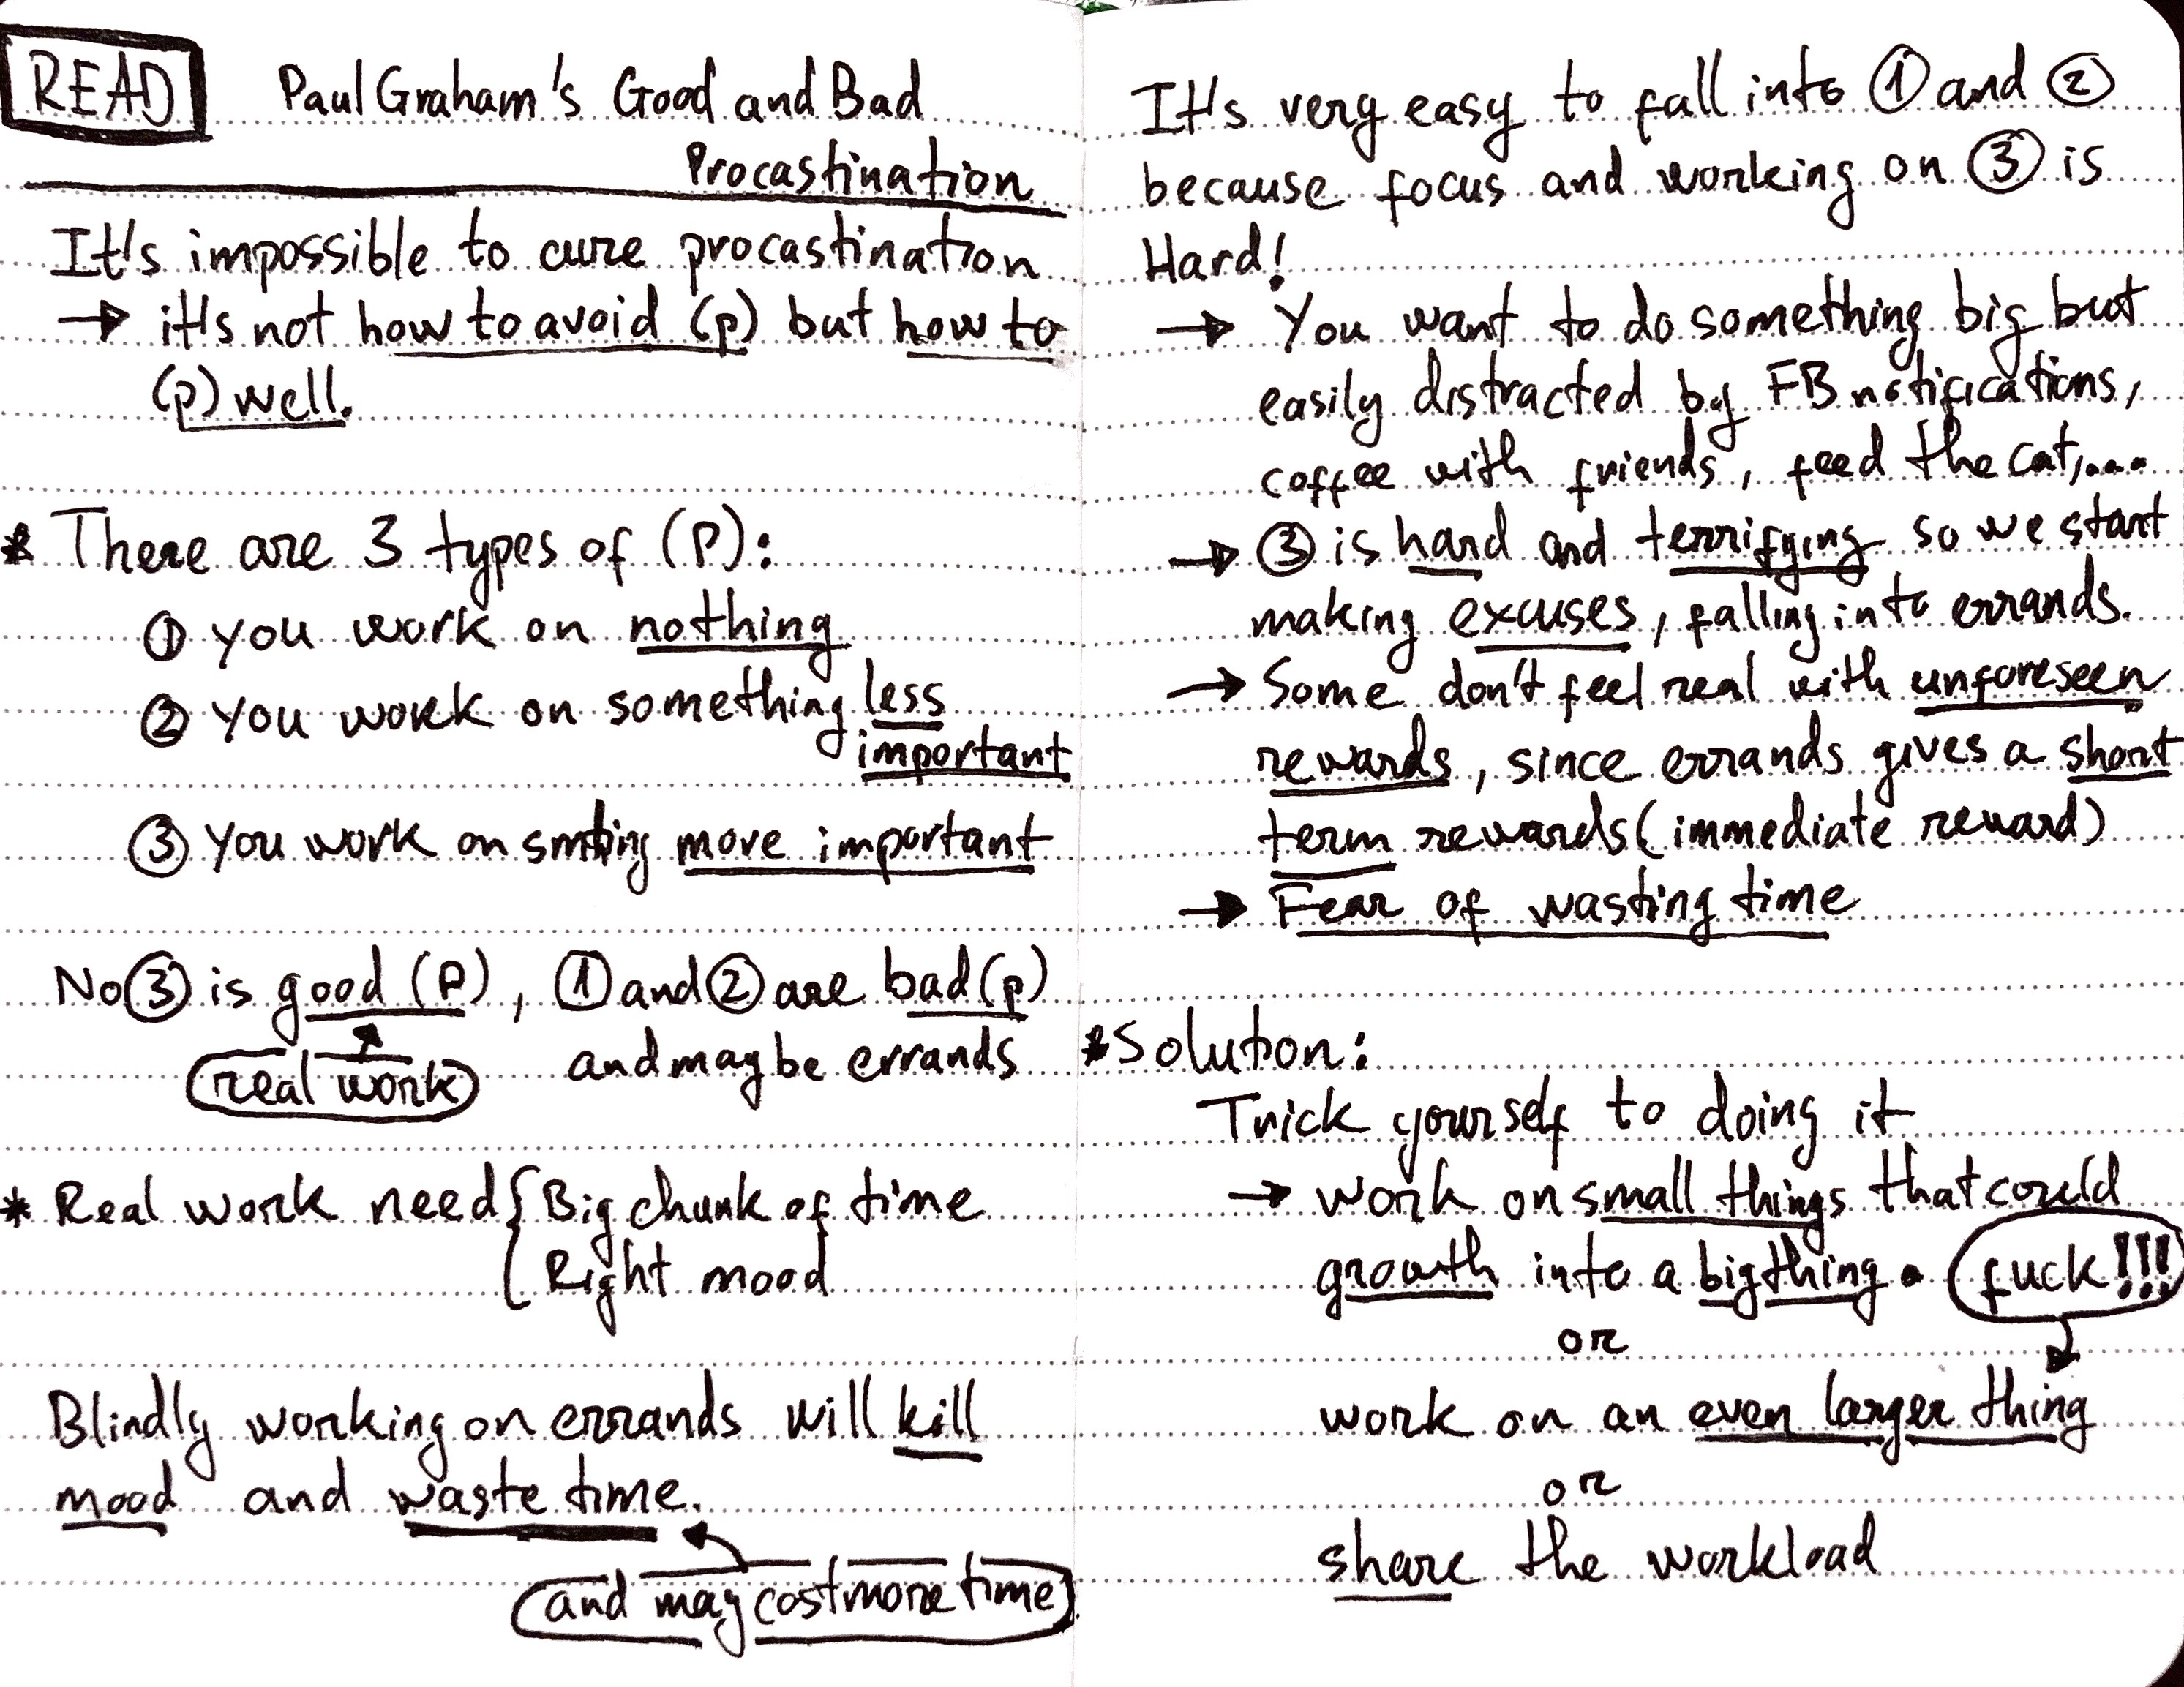 READ Paul Graham's Good and Bad
Procastination
It's impossible to cure procastination
→ it's not how to avoid (p) but how to
(p) well.
* There are 3 types of (P):
① you work on nothing
② you work on something less
important
③ you work on smthing more important
No ③ is good (P), ① and ② are bad (p)
real work and may be errands
* Real work need { Big chunk of time
Right mood
Blindly working on errands will kill
mood and waste time.
and may cost more time
It's very easy to fall into ① and ②
because focus and working on ③ is
Hard!
→ You want to do something big but
easily distracted by FB notifications,
coffee with friends, feed the cat,...
→ ③ is hard and terrifying so we start
making excuses, falling into errands.
→ Some don't feel real with unforeseen
rewards, since errands gives a short
term rewards (immediate reward)
→ Fear of wasting time
* Solution:
Trick yourself to doing it
→ work on small things that could
growth into a big thing. fuck!!!
or
work on an even larger thing
or
share the workload